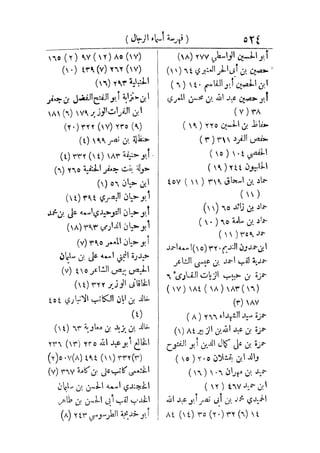 ٥٢٤ (فهرسة أسماء الرجال)
أبو الحسين الواسطي ٢٧٧ (١٨)
حصين بن أبى الحر العنبرى ٦٤ (١١)
ابن الحصين أبو القاسم ١٤٠ (٦)
أبو حصين عبد الله بن محسن المعرى
٣٨ (٧)
حفاظ بن الحسين ٢٢٥ (١٩)
حفص الفرد ٣١١ (٣)
الحفصي ١٠٤ (١٥)
الحلبيون ٢٤٤ (١٩)
حماد بن اسحاق ٣١٩ (١١) ٤٥٧
(١١)
حماد بن زائد ٦٥ (١١)
حماد بن سلمة ٦٥ (١٠)
حمد ٣٥٩ (١١)
ابن حمدون النديم ٣٢٠ (١٥) اسمه احمد
حمدية لقب احمد بن عيسى الشاعر
حمزة بن حبيب الزيات القارى ٦
(١٦) ١٨٣ (١٨) ١٨٤ (١٧)
١٨٧ (٣)
حمزة سيد الشهداء ٢٦٦ (٨)
حمزة بن عبد الله بن الزبير ٨٤ (١)
حمزة بن على كمال الدين أبو الفتوح
والد ابن بقشلان ٢٠٥ (١٥)
حميد بن مهران ١٠٦ (١٦)
ابن حميد ٤٦٧ (١٢)
الحميدى محمد بن أبى نصر أبو عبد الله
١٤ (٦) ٣٢ (٢٠) ٣٥ (١٤) ٨٤
(١٧) ٨٥ (١٢) ٩٧ (٢) ١٦٥
(١٧) ٢٦٢ (٧) ٤٣٩ (١٠)
الحنبلية ٢٩٣ (١٦)
ابن حنزابة أبو الفتح الفضل بن جعفر
ابن الفرات الوزير ١٧٩ (٦) ١٨١
(٩) ٢٣٥ (١٧) ٣٢٢ (٢٠)
حنظلة بن نصر ١٩٩ (٤)
أبو حنيفة ١٨٣ (١٤) ٣٣٢ (٤)
خولة بنت جعفر الحنفية ٢٦٥ (٦)
ابن حيان ٥٦ (١)
أبو حيان البصرى ٣٩٤ (١٤)
أبو حيان التوحيدى اسمه على بن محمد
أبو حيان الدارمى ٣٩٣ (١٨)
أبو حيان المعمر ٣٩٥ (٧)
حيدرة التيمى اسمه على بن سليمان
الحيص بيص الشاعر ٤١٥ (٧)
الخاقانى الوزير ٣٢٢ (١٤)
خالد بن ابان الكاتب الانبارى ٤٥٤
(٤)
خالد بن يزيد بن معاوية ٦٣ (١٤)
الخالع أبو عبد الله ٢٢٥ (١٣) ٢٣٦
(٣) ٣٣٢ (١١) ٤٩٤ (٨) ٥٠٧ (٢)
الخثعمى كاتب على بن كامة ٣٦٧ (٧)
الخجندى اسمه الحسن بن سليمان
الخدب لقب أبى الحسن بن طاهر
أبو خديجة الطرسوسى ٢٤٣ (٨)